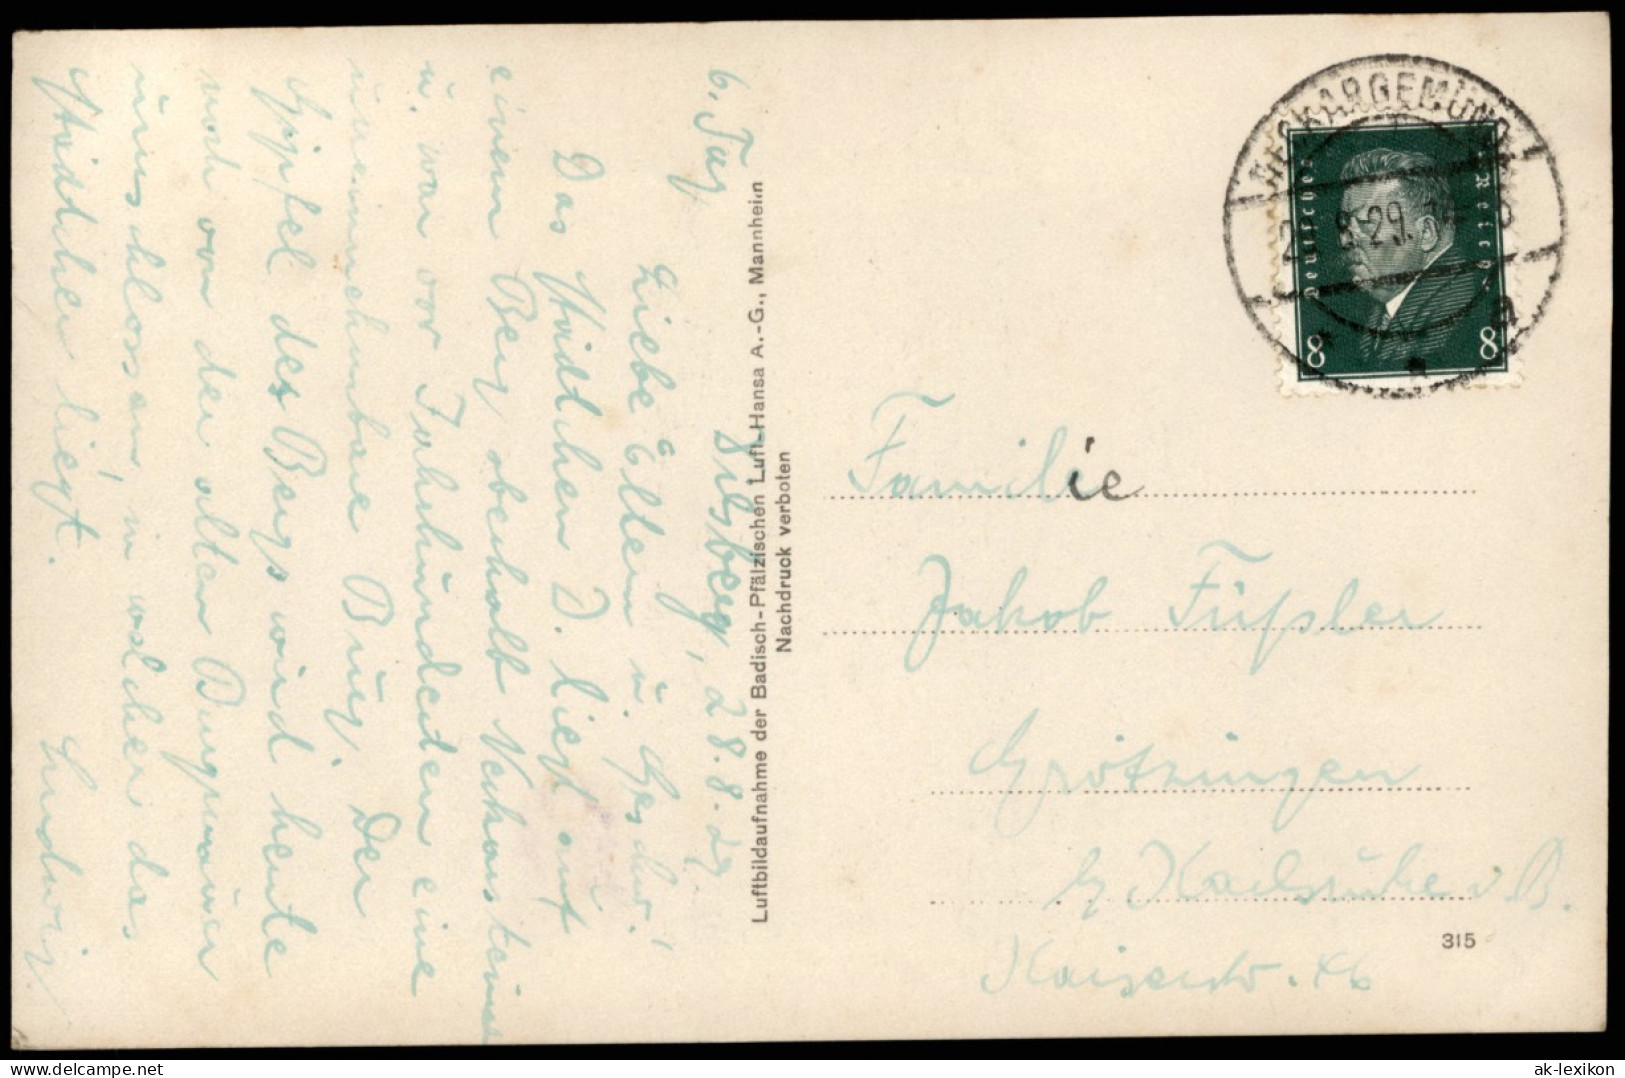 6. Tag
Dilsberg, 28.8.29.
Liebe Eltern u. Geschw.!
Das Städtchen D. liegt auf
einem Berg oberhalb Neckarsteinach
u. war vor Jahrhunderten eine
uneinnehmbare Burg. Der
Gipfel des Bergs wird heute
noch von der alten Burgmauer
umschlossen, in welcher das
Städtchen liegt.
Ludwig.
Luftbildaufnahme der Badisch-Pfälzischen Luft-Hansa A.-G., Mannheim
Nachdruck verboten
NECKARGEMÜND
8.29.
Deutsches Reich
8 8
Familie
Jakob Füßler
Grötzingen
b/ Karlsruhe i. B.
Kaiserstr. 46
315
ak-lexikon